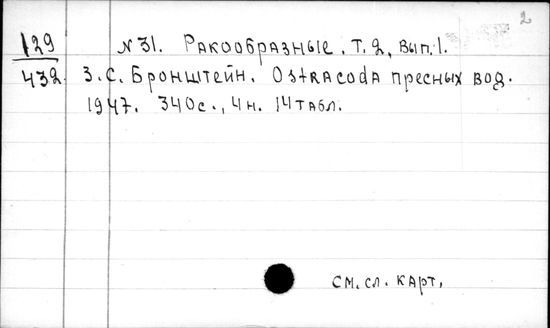 2
129 № 31. Ракообразные. Т. 2, вып. 1.
432 З. С. Бронштейн. Ostracoda пресных вод.
1947. 340 с., 4 н. 14 табл.
см. сл. карт.